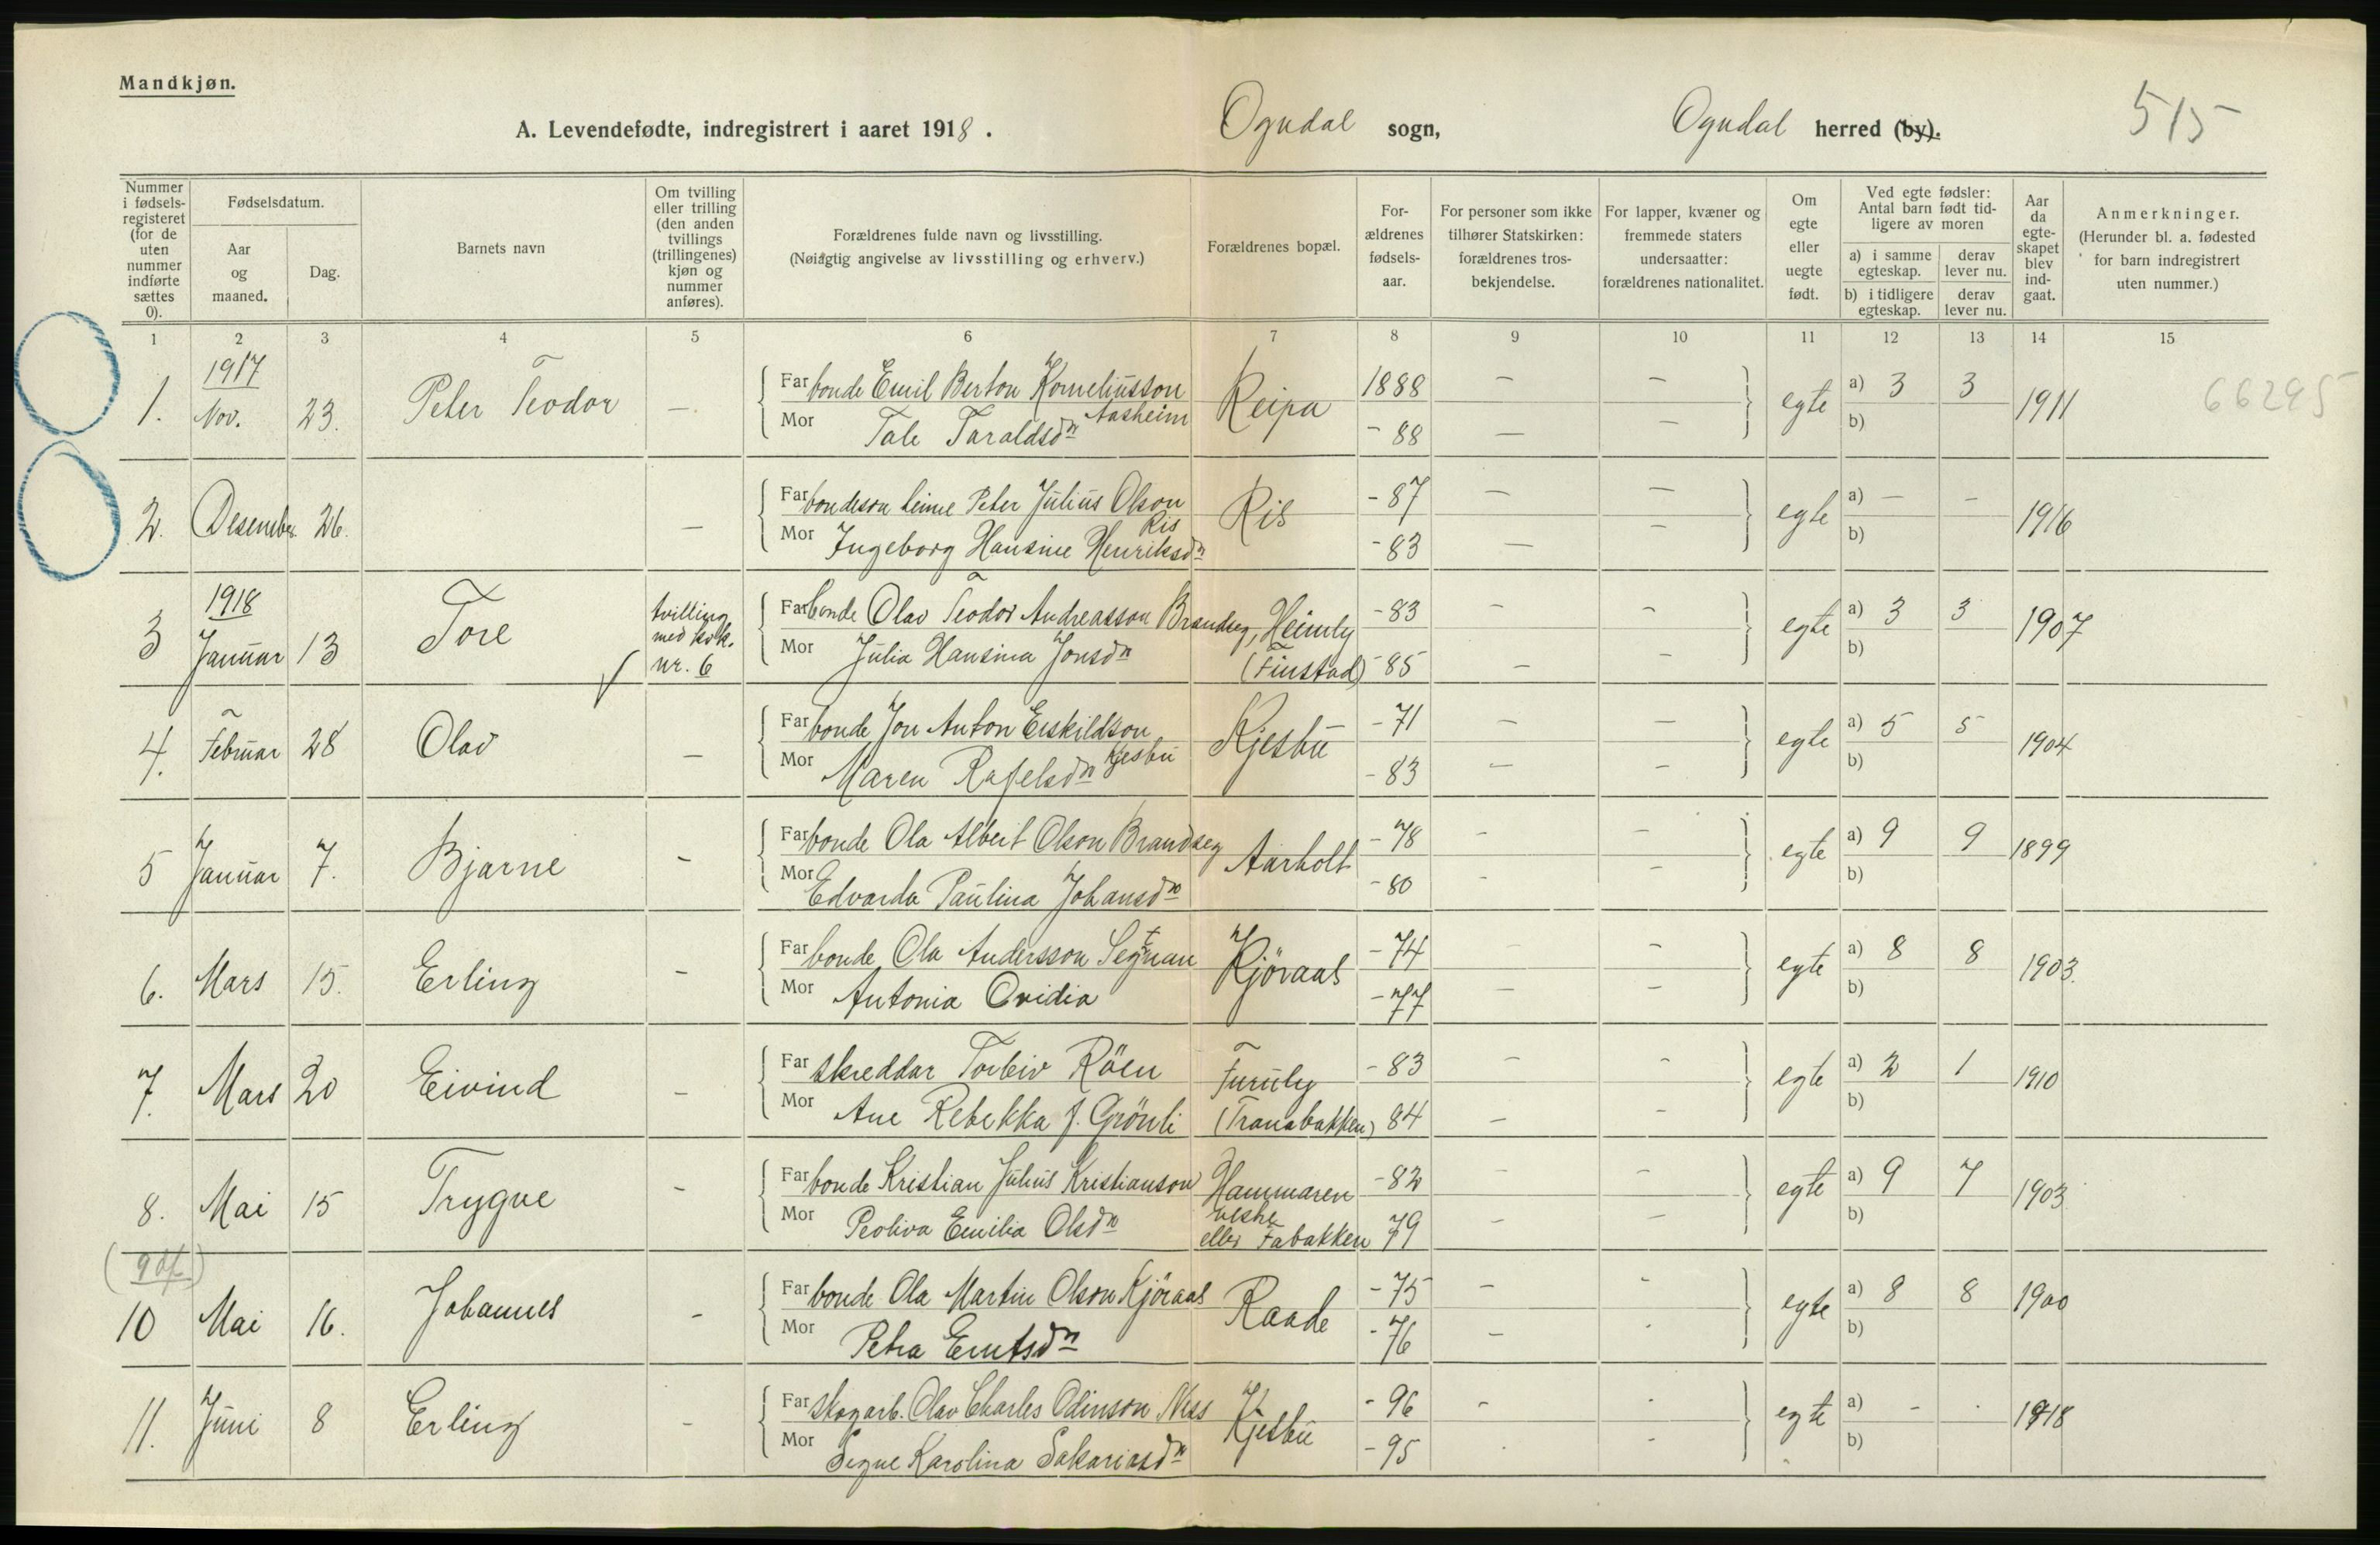 Mandkjøn.
A. Levendefødte, indregistrert i aaret 1918. Ogndal sogn, Ogndal herred (by). 515
Nummer i fødsels-registeret (for de uten nummer indførte sættes 0).
Fødselsdatum.
Aar og maaned.
Dag.
Barnets navn
Om tvilling eller trilling (den anden tvillings (trillingenes) kjøn og nummer anføres).
Forældrenes fulde navn og livsstilling.
(Nøiagtig angivelse av livsstilling og erhverv.)
Forældrenes bopæl.
For-ældrenes fødsels-aar.
For personer som ikke tilhører Statskirken: forældrenes tros-bekjendelse.
For lapper, kvæner og fremmede staters undersaatter: forældrenes nationalitet.
Om egte eller uegte født.
Ved egte fødsler: Antal barn født tid-ligere av moren
a) i samme egteskap. derav lever nu.
b) i tidligere egteskap. derav lever nu.
Aar da egte-skapet blev ind-gaat.
Anmerkninger.
(Herunder bl. a. fødested for barn indregistrert uten nummer.)
1 2 3 4 5 6 7 8 9 10 11 12 13 14 15
1917
1. Nov. 23. Peter Teodor — Far bonde Emil Berton Korneliusson Aasheim Reipa 1888 — — egte a) 3 3 1911 66295
Mor Tale Taraldsdn - 88 — — b)
2. Desember 26. — Far bondeson heime Peter Julius Olson Ris Ris - 87 — — egte a) — — 1916
Mor Ingeborg Hansine Henriksdn - 83 — — b)
1918
3 Januar 13 Tore tvilling med kvk. nr. 6 Far bonde Olav Teodor Andreasson Brandseg, Heimly - 83 — — egte a) 3 3 1907
Mor Julia Hansina Jonsdn (Finstad) - 85 — — b)
4. Februar 28 Olav — Far bonde Jon Anton Eskildson Kjesbu Kjesbu - 71 — — egte a) 5 5 1904
Mor Maren Rafelsdn - 83 — — b)
5 Januar 7. Bjarne - Far bonde Ola Albert Olson Brandseg Aarholt - 78 - — egte a) 9 9 1899
Mor Edvarda Paulina Johansdn - 80 - — b)
6. Mars 15. Erling - Far bonde Ola Andersson Kjöraas - 74 - — egte a) 8 8 1903.
Mor Antonia Ovidia - 77 — — b)
7. Mars 20 Eivind - Far skreddar Torleiv Röen Furuly - 83 — - egte a) 2 1 1910
Mor Ane Rebekka f. Grönli (Tranabakken) 84 — — b)
8. Mai 15 Trygve - Far bonde Kristian Julius Kristianson Hammaren - 82 - — egte a) 9 7 1903
Mor Peoliva Emilia Olsdn vestre eller Fabakken 79 — — b)
(9 df.)
10 Mai 16. Johannes - Far bonde Ola Martin Olson Kjöraas Raade - 75 — - egte a) 8 8 1900
Mor Petra - 76 — - b)
11. Juni 8 Erling - Far skogarb. Olav Charles Odinson Ness Kjesbu - 96 - - egte a) - . 1918
Mor Signe Karolina Sakariasdn - 95 . - b)